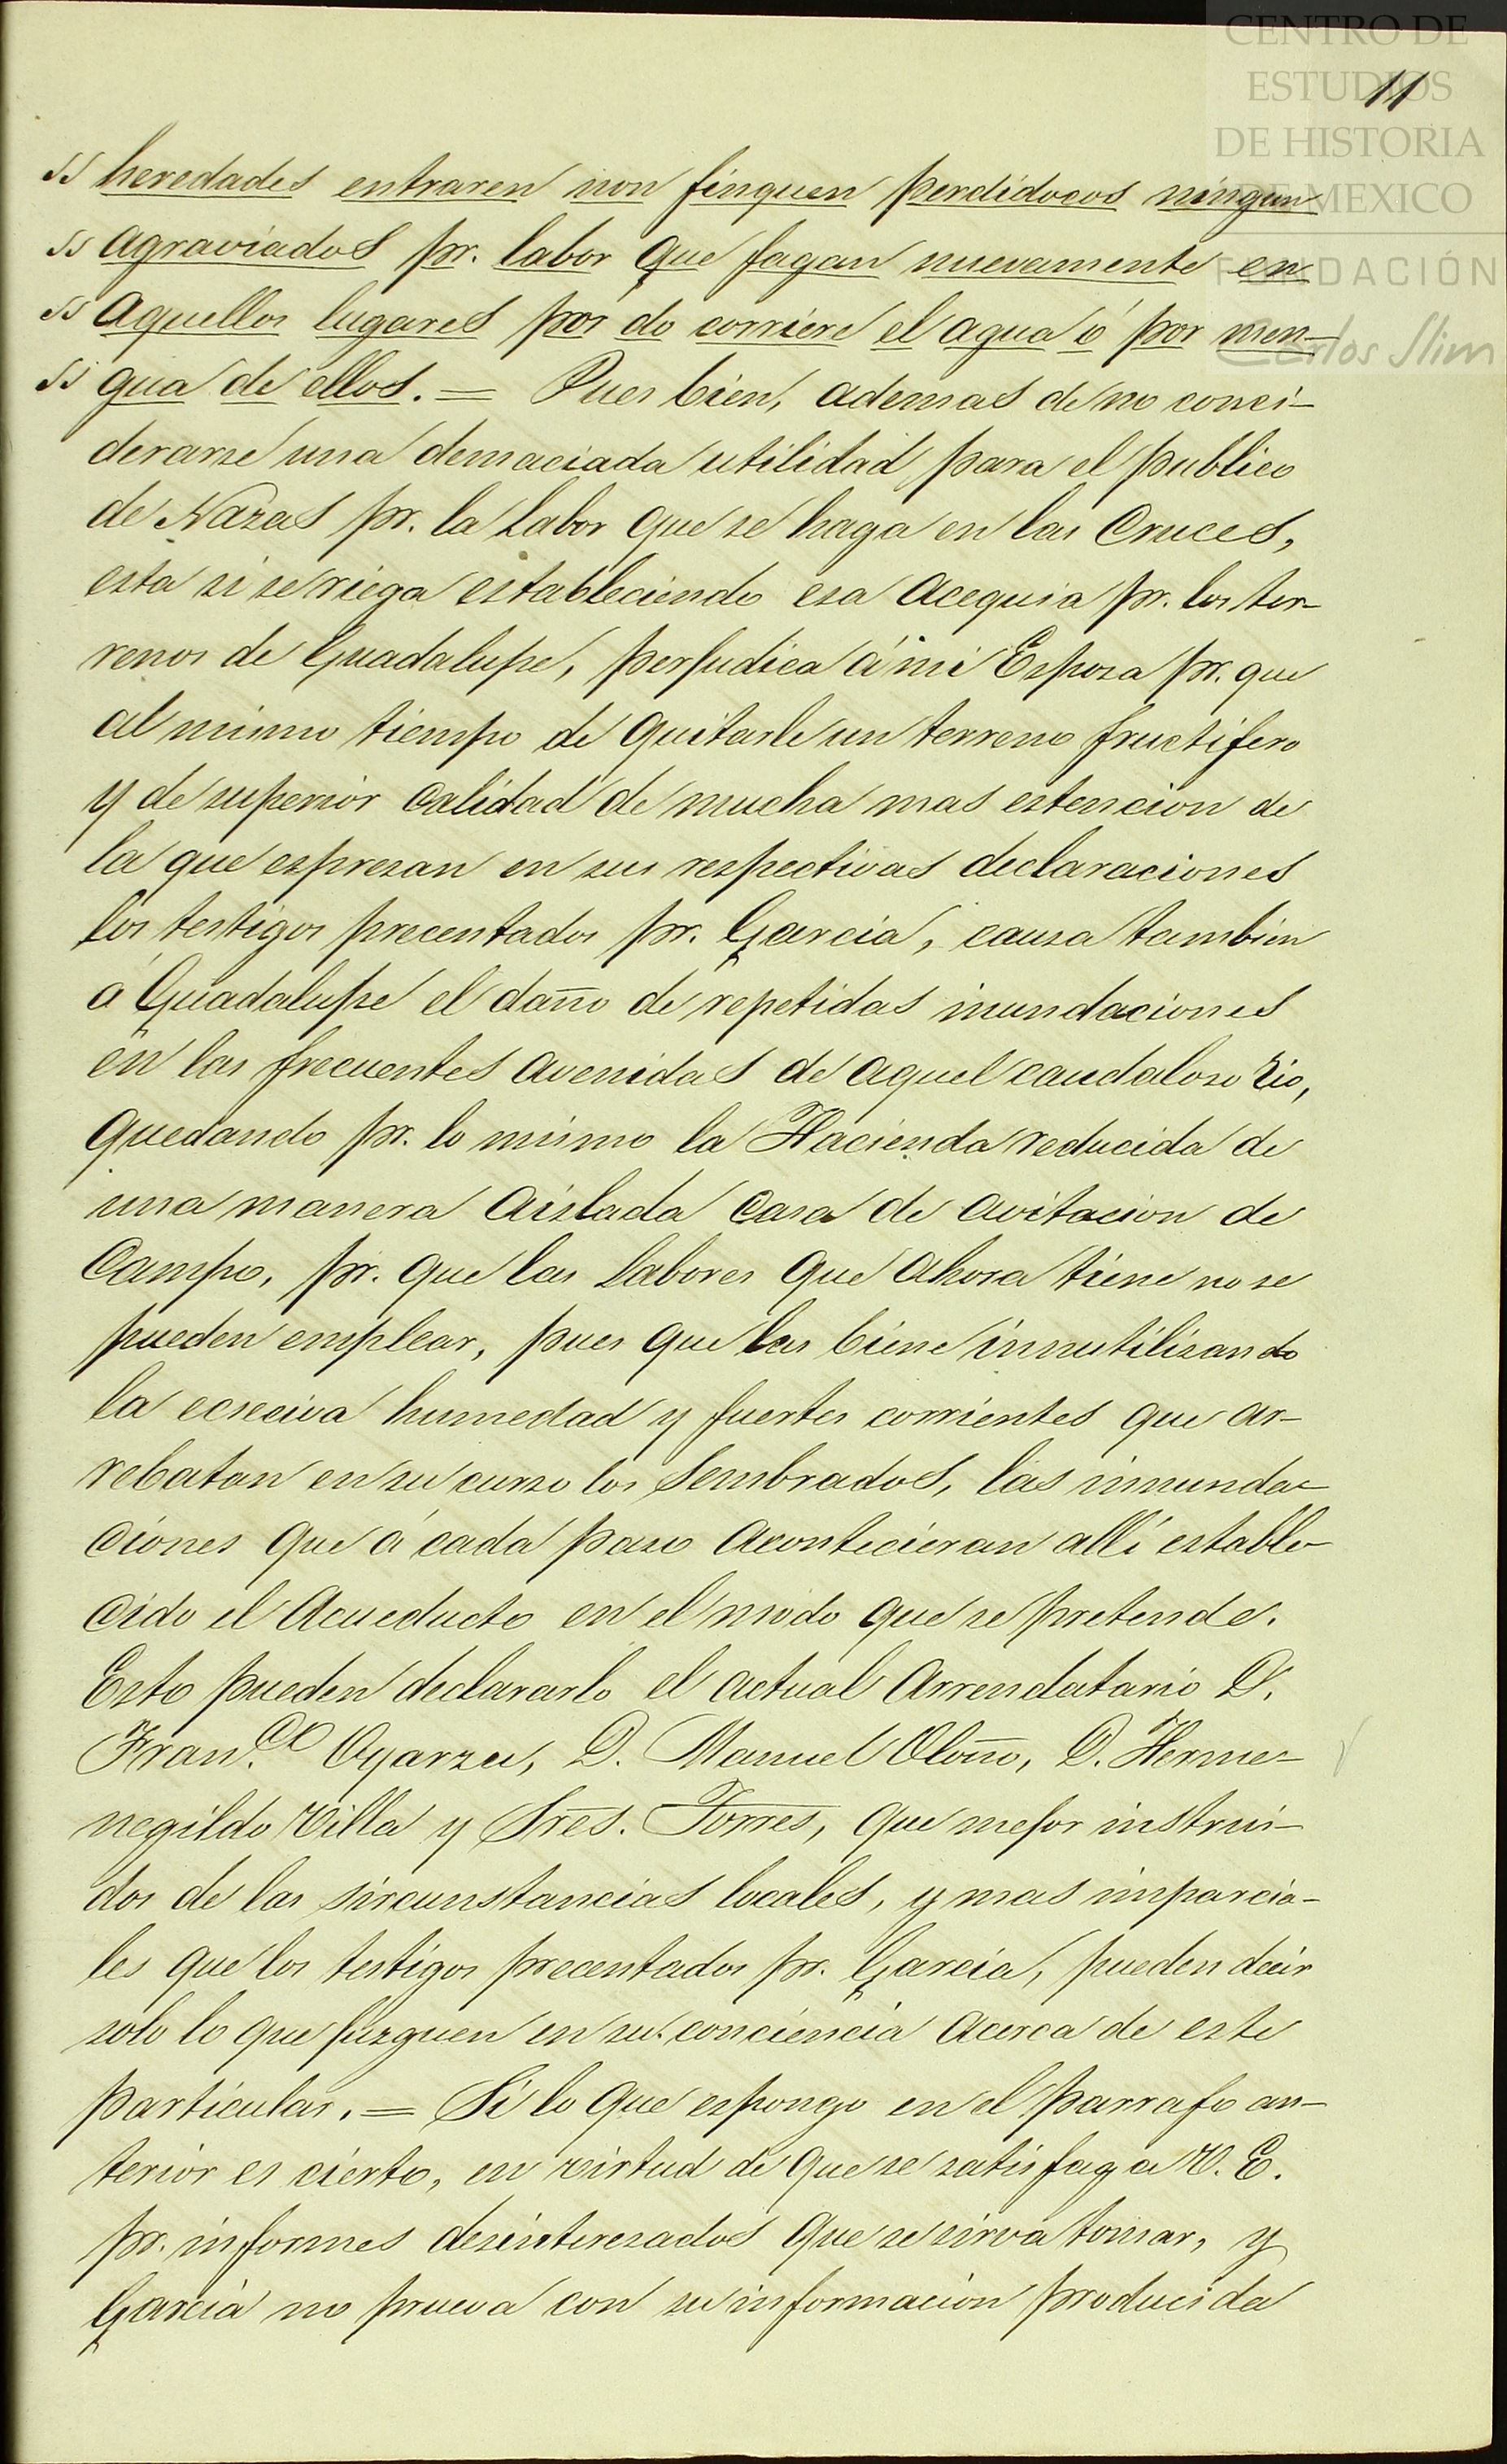 CENTRO DE
ESTUDIOS
DE HISTORIA
DE MEXICO
FUNDACIÓN
Carlos Slim
11
" heredades entraren non finquen perdidocos ningun
" agraviados pr. labor que fagan nuevamente en
" aquellos lugares por do corriere el agua ó por men-
" gua de ellos. = Pues bien, ademas de no conci-
derarse una demaciada utilidad para el publico
de Nazas pr. la Labor que se haga en las Cruces,
esta si se riega estableciendo esa Acequia pr. los ter-
renos de Guadalupe, perjudica á mi Esposa pr. que
al mismo tiempo de quitarle un terreno fructifero
y de superior calidad de mucha mas estencion de
la que espresan en sus respectivas declaraciones
los testigos precentados pr. Garcia, causa tambien
á Guadalupe el daño de repetidas inundaciones
en las frecuentes avenidas de aquel caudaloso Rio,
quedando pr. lo mismo la Hacienda reducida de
una manera aislada Casa de avitacion de
Campo, pr. que las Labores que ahora tiene no se
pueden emplear, pues que las biene innutilisando
la ecseciva humedad y fuertes corrientes que ar-
rebatan en su curso los Sembrados, las inunda-
ciones que á cada paso acontecieran allí estable-
cido el Acueducto en el modo que se pretende.
Esto pueden declararlo el actual Arrendatario D.
Fran.co Oyarzu, D. Manuel Oloño, D. Herme-
negildo Villa y Sres. Torres, que mejor instrui-
dos de las sircunstancias locales, y mas imparcia-
les que los testigos precentados pr. Garcia, pueden decir
solo lo que juzguen en su conciencia acerca de este
particular. = Si lo que espongo en el parrafo an-
terior es cierto, en virtud de que se satisfaga V. E.
pr. informes desinteresados que se sirva tomar, y
Garcia no prueva con su informacion producida